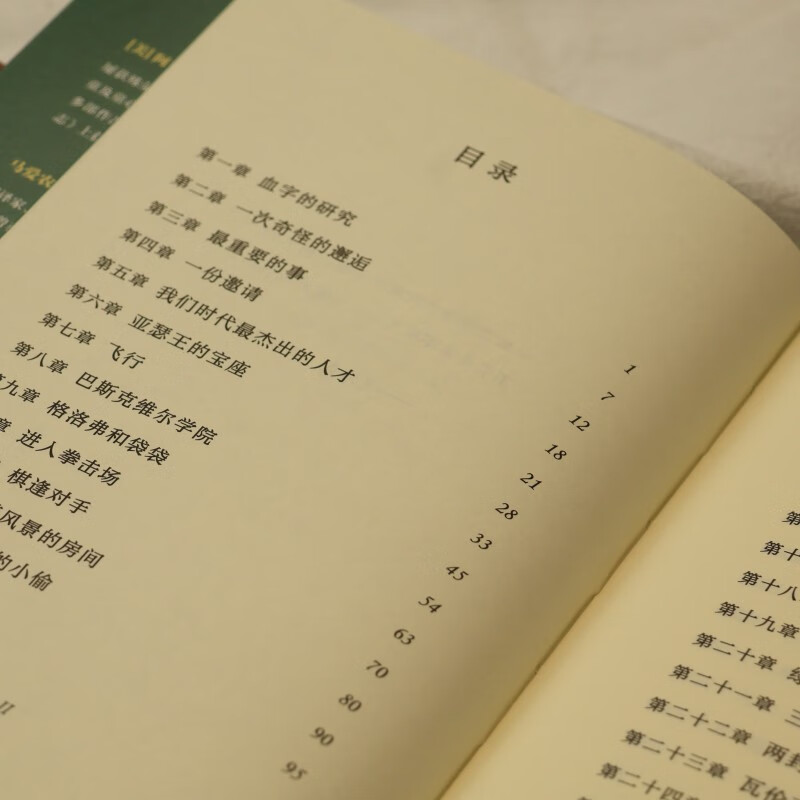 目录
第一章 血字的研究 1
第二章 一次奇怪的邂逅 7
第三章 最重要的事 12
第四章 一份邀请 18
第五章 我们时代最杰出的人才 21
第六章 亚瑟王的宝座 28
第七章 飞行 33
第八章 巴斯克维尔学院 45
九章 格洛弗和袋袋 54
章 进入拳击场 63
棋逢对手 70
风景的房间 80
的小偷 90
95
II
第
第十
第十八
第十九章
第二十章
第二十一章 三
第二十二章 两封
第二十三章 瓦伦
第二十四章
马爱农